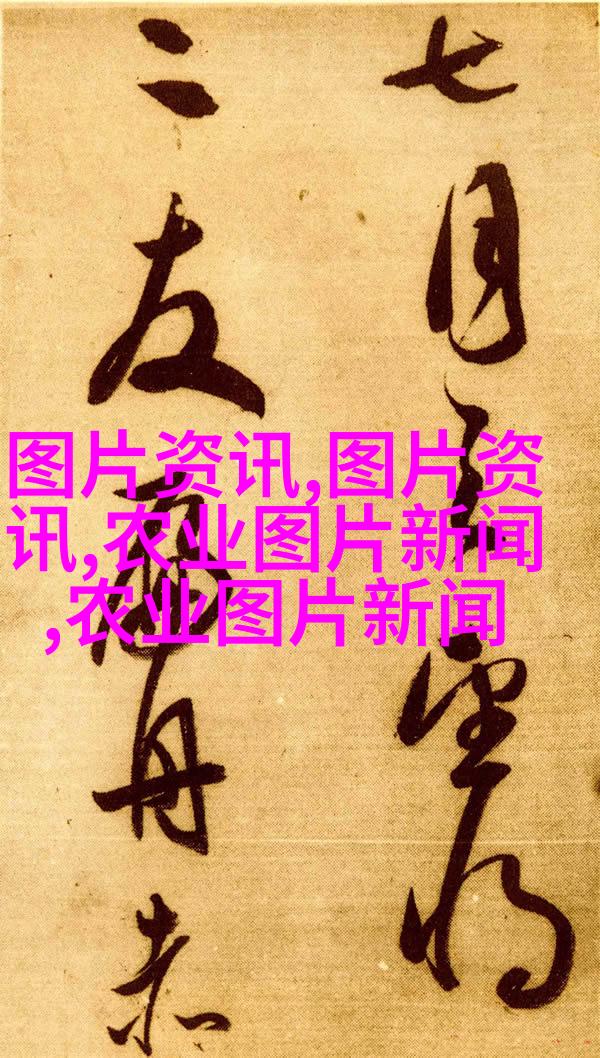 七月望将
二友舟赤
图片资讯,图片资
讯,农业图片新闻
,农业图片新闻